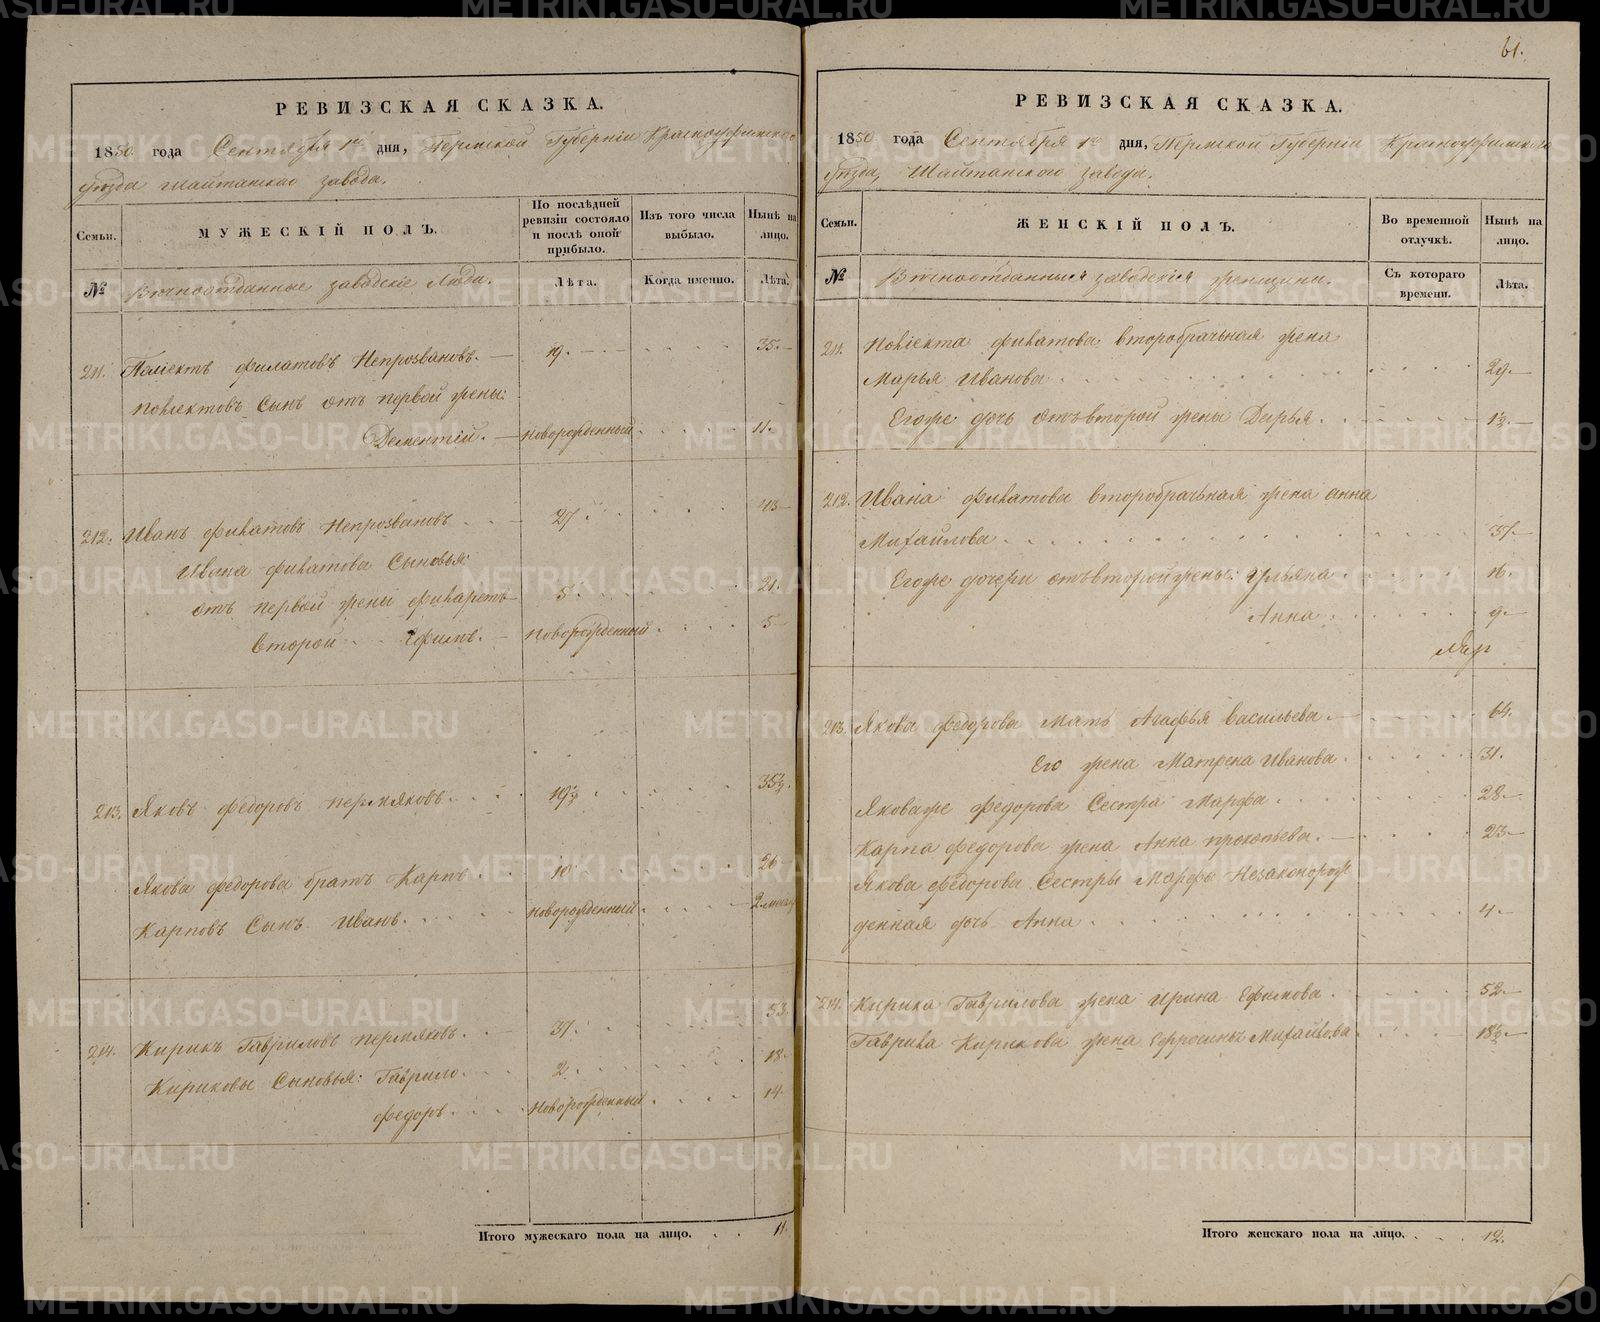 61.
РЕВИЗСКАЯ СКАЗКА.
1850 года Сентября 1го дня, Пермской Губерніи Красноуфимскаго
уѣзда Шайтанскаго завода.
Семьи. МУЖЕСКІЙ ПОЛЪ. По послѣдней ревизіи состояло и послѣ оной прибыло. Изъ того числа выбыло. Нынѣ на лицо.
№ Вѣчноотданные заводскіе Люди. Лѣта. Когда именно. Лѣта.
211. Поліектъ Филатовъ Непрозвановъ. 19. 35.
Поліектовъ Сынъ отъ первой жены:
Дементій. новорожденный 11.
212. Иванъ Филатовъ Непрозвановъ 27 43
Ивана Филатова Сыновья:
отъ первой жены Филаретъ 5 21.
Второй Ефимъ. новорожденный 5
213. Яковъ Федоровъ Пермяковъ. 19½ 35½.
Якова Федорова братъ Карпъ. 10 26
Карповъ Сынъ Иванъ. новорожденный 2
214. Кирикъ Гавриловъ Пермяковъ. 37. 53.
Кириковы Сыновья: Гаврило 2. 18.
Федоръ. Новорожденный 14.
Итого мужескаго пола на лицо. 11.
РЕВИЗСКАЯ СКАЗКА.
1850 года Сентября 1го дня, Пермской Губерніи Красноуфимскаго
уѣзда, Шайтанскаго завода.
Семьи. ЖЕНСКІЙ ПОЛЪ. Во временной отлучкѣ. Нынѣ на лицо.
№ Вѣчноотданныя заводскія женщины. Съ котораго времени. Лѣта.
211. Поліекта Филатова второбрачная жена
Марья Иванова 29.
Егоже дочь отъ второй жены Дарья. 1½
212. Ивана Филатова второбрачная жена Анна
Михайлова 37.
Егоже дочери отъ второй жены: Ульяна 16.
Анна 9.
213. Якова Федорова Мать Агафья Васильева. 64.
Его жена Матрена Иванова. 31.
Яковаже Федорова Сестра Марфа 28
Карпа Федорова жена Анна Прокопьева. 23
Якова Федорова Сестры Марфы Незаконорож
денная дочь Анна 4
214. Кирика Гаврилова жена Ирина Ефимова. 52
Гаврила Кирикова жена Ефросинья Михайлова 18½
Итого женскаго пола на лицо. 12.
METRIKI.GASO-URAL.RU